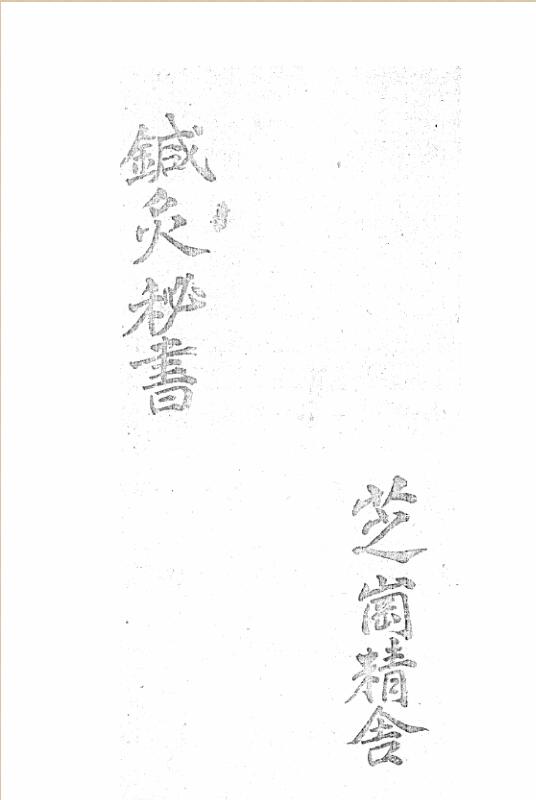 鍼灸秘書
芝崗精舍